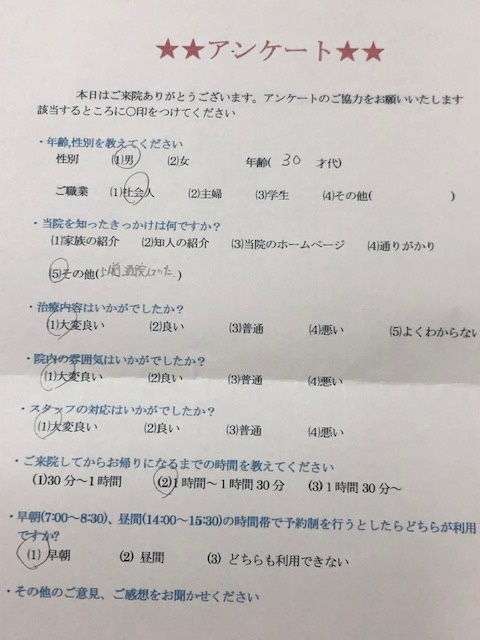 ★★アンケート★★
本日はご来院ありがとうございます。アンケートのご協力をお願いいたします
該当するところに〇印をつけてください
・年齢,性別を教えてください
性別 (1)男 (2)女 年齢( 30 才代)
ご職業 (1)社会人 (2)主婦 (3)学生 (4)その他( )
・当院を知ったきっかけは何ですか?
(1)家族の紹介 (2)知人の紹介 (3)当院のホームページ (4)通りがかり
(5)その他(以前通院していた)
・治療内容はいかがでしたか?
(1)大変良い (2)良い (3)普通 (4)悪い (5)よくわからない
・院内の雰囲気はいかがでしたか?
(1)大変良い (2)良い (3)普通 (4)悪い
・スタッフの対応はいかがでしたか?
(1)大変良い (2)良い (3)普通 (4)悪い
・ご来院してからお帰りになるまでの時間を教えてください
(1)30分~1時間 (2)1時間~1時間30分 (3)1時間30分~
・早朝(7:00~8:30)、昼間(14:00~15:30)の時間帯で予約制を行うとしたらどちらが利用
ですか?
(1) 早朝 (2) 昼間 (3) どちらも利用できない
・その他のご意見、ご感想をお聞かせください